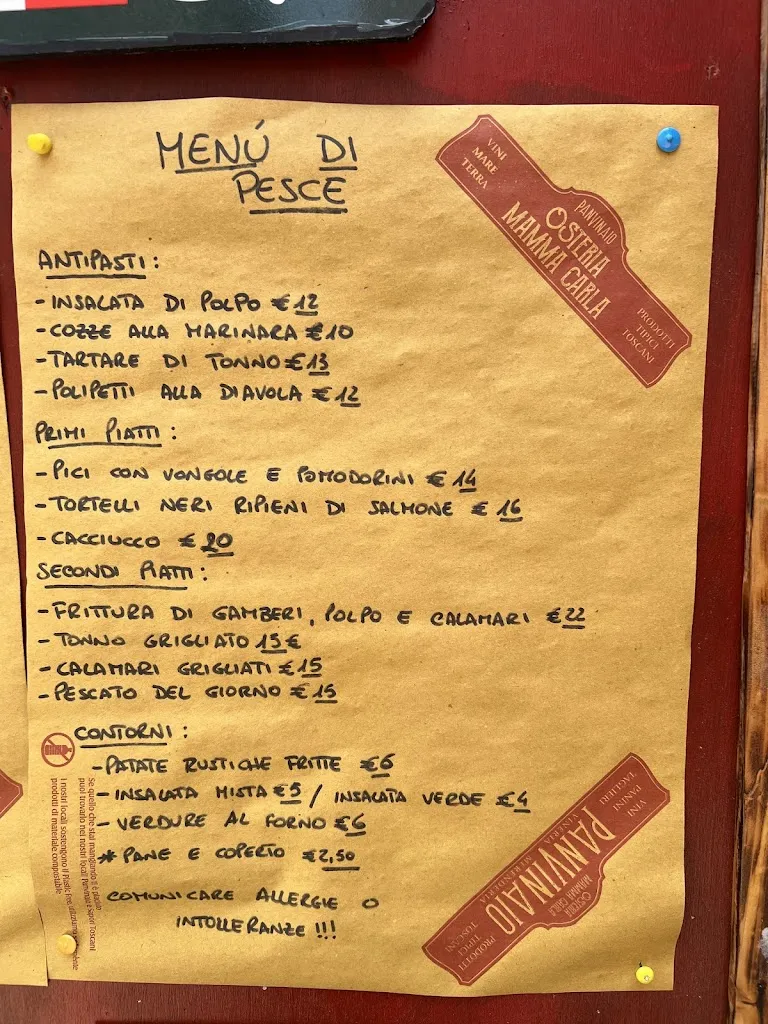 MENÚ DI
PESCE
VINI
MARE
TERRA
PANVINAIO
OSTERIA
MAMMA CARLA
PRODOTTI
TIPICI
TOSCANI
ANTIPASTI:
- INSALATA DI POLPO €12
- COZZE ALLA MARINARA €10
- TARTARE DI TONNO €13
- POLIPETTI ALLA DIAVOLA €12
PRIMI PIATTI:
- PICI CON VONGOLE E POMODORINI €14
- TORTELLI NERI RIPIENI DI SALMONE €16
- CACCIUCCO €20
SECONDI PIATTI:
- FRITTURA DI GAMBERI, POLPO E CALAMARI €22
- TONNO GRIGLIATO 15€
- CALAMARI GRIGLIATI €15
- PESCATO DEL GIORNO €15
CONTORNI:
- PATATE RUSTICHE FRITTE €6
- INSALATA MISTA €5 / INSALATA VERDE €4
- VERDURE AL FORNO €6
* PANE E COPERTO €2,50
COMUNICARE ALLERGIE O
INTOLLERANZE !!!
Se quello che stai mangiando ti è piaciuto
puoi trovarlo nei nostri locali Panvinaio e Sapori Toscani
I nostri locali sostengono il Plastic Free
prodotti di materiale compostabile
VINI
PANINI
TAGLIERI
VINERIA
PANVINAIO
MERENDERIA
OSTERIA
MAMMA CARLA
PRODOTTI
TIPICI
TOSCANI